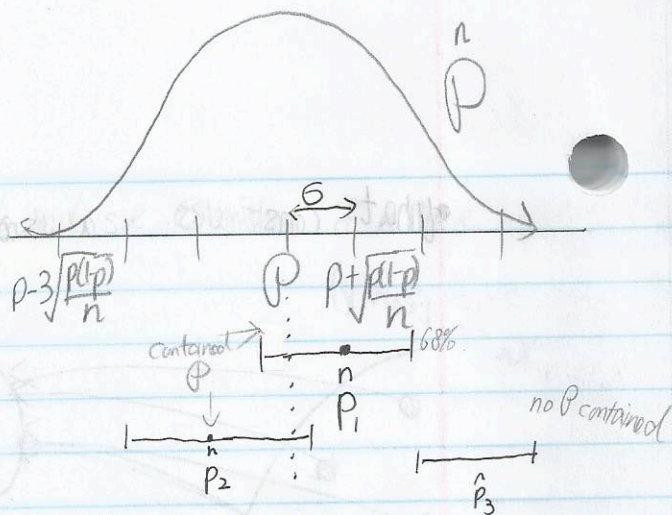 n
P
σ
p-3√(p(1-p)/n)
P
p+√(p(1-p)/n)
contained
P
68%
n
P₁
no P contained
n
P₂
p̂₃